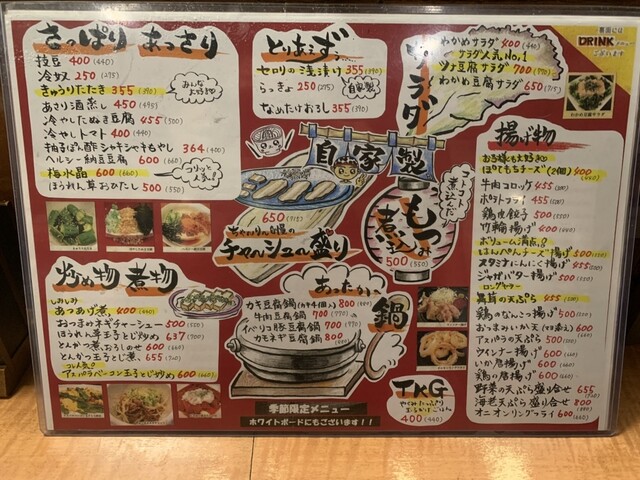 さっぱり あっさり
枝豆 400 (440)
冷奴 250 (275)
きゅうりたたき 355 (390)
みんな大好き♡
あさり酒蒸し 450 (495)
冷やしたぬき豆腐 455 (500)
冷やしトマト 400 (440)
柚子ぽん酢シャキシャキもやし 364 (400)
ヘルシー納豆豆腐 600 (660)
梅水晶 600 (660)
コリッと人気♡
ほうれん草おひたし 500 (550)
とりあえず、
セロリの浅漬け 355 (390)
らっきょ 250 (275)
自家製
なめたけおろし 355 (390)
サラダ
わかめサラダ 400 (440)
サラダ人気No.1
ツナ豆腐サラダ 700 (770)
わかめ豆腐サラダ 650 (715)
裏面には
DRINKメニュー
ございます
わかめ豆腐サラダ
自家製
650 (715)
ちゃーりん自慢の
チャーシュー盛り
コトコト煮込んだ
もつ煮込み
500 (550)
揚げ物
お子様も大好き♡
ほっておもちチーズ(2個) 400 (440)
牛肉コロッケ 455 (500)
ポテトフライ 455 (500)
鶏皮餃子 500 (550)
竹輪揚げ 400 (440)
ボリューム満点!!
はんぺんチーズ揚げ 500 (550)
スタミナにんにく揚げ 455 (500)
ジャガバター揚げ 500 (550)
ロングセラー
黒茸の天ぷら 455 (500)
鶏のなんこつ揚げ 500 (550)
おつまみいか天 600 (660)
アスパラの天ぷら 500 (550)
ウインナー揚げ 600 (660)
いか唐揚げ 600 (660)
鶏の唐揚げ 600 (660)
野菜の天ぷら盛り合せ 655 (720)
海老天ぷら盛り合せ 800 (880)
オニオンリングフライ 600 (660)
炒め物 煮物
しみしみ
あつあげ煮 400 (440)
おつまみネギチャーシュー 500 (550)
ほうれん草玉子とじ炒め 637 (700)
とんかつ煮おろしのせ 600 (660)
とんかつ玉子とじ煮 655 (720)
コレ人気!
アスパラベーコン玉子とじ炒め 600 (660)
あったか〜
鍋
カキ豆腐鍋(カキ4個入) 800 (880)
牛肉豆腐鍋 700 (770)
イベリコ豚豆腐鍋 700 (770)
カモネギ豆腐鍋 800 (880)
TKG
400 (440)
季節限定メニュー
ホワイトボードにもございます!!